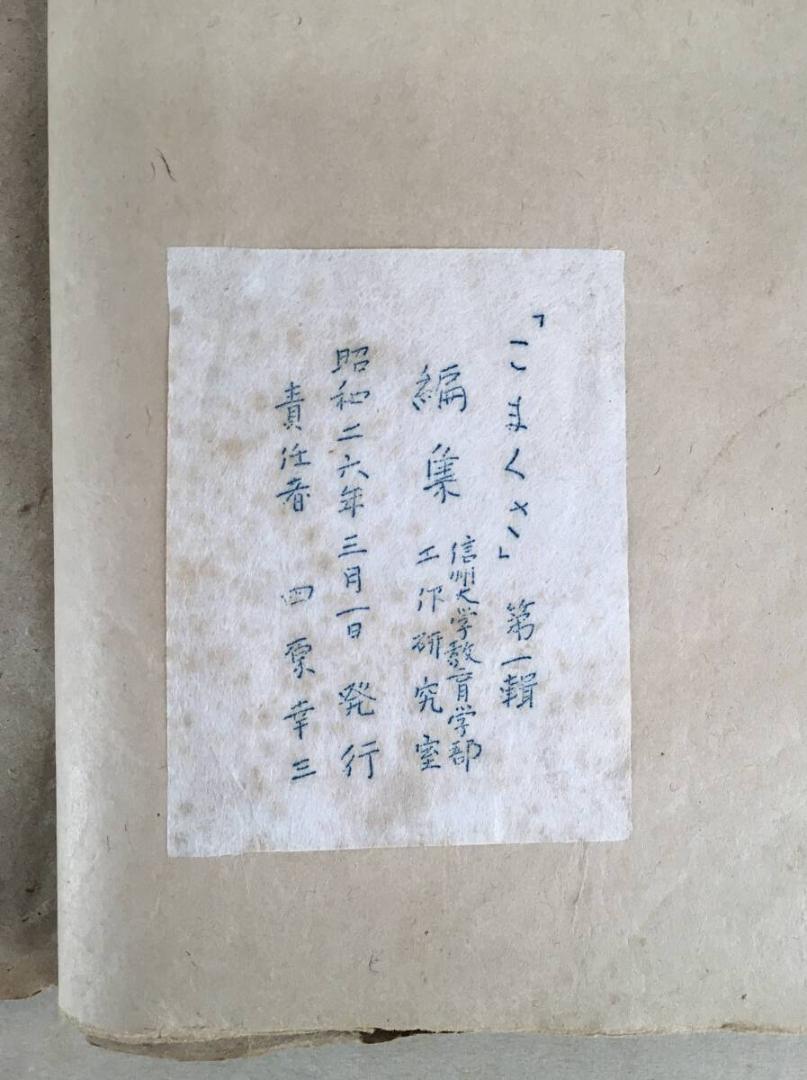 「こまくさ」 第一輯
編集 信州大学教育学部
工作研究室
昭和二六年三月一日 発行
責任者 四栗幸三